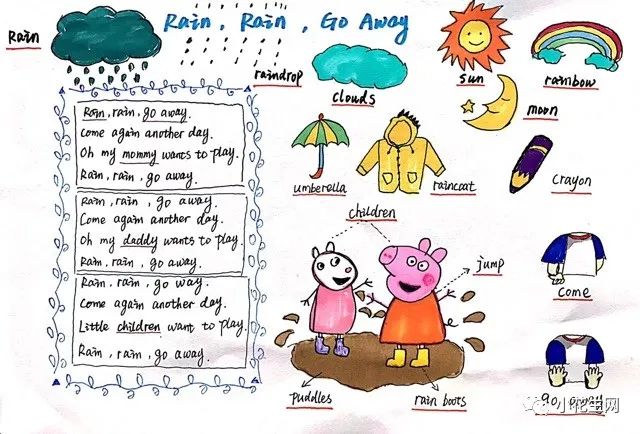 Rain
Rain, Rain, Go Away
raindrop
clouds
sun
rainbow
moon
Rain, rain, go away.
Come again another day.
Oh my mommy wants to play.
Rain, rain, go away.
Rain, rain, go away.
Come again another day.
Oh my daddy wants to play.
Rain, rain, go away.
Rain, rain, go way.
Come again another day.
Little children want to play.
Rain, rain, go away.
umberella
raincoat
crayon
children
jump
come
puddles
rain boots
go away
小花生网